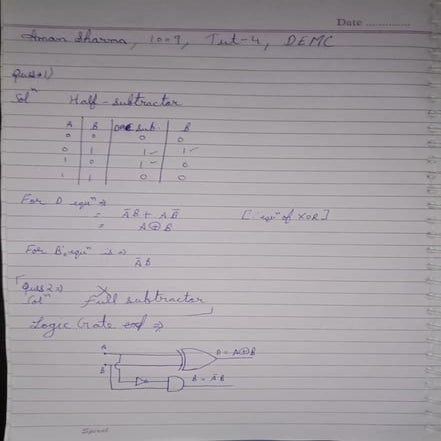 Date
Aman Sharma, 1009, Tut-4, DEMC
Ques 1)
Solⁿ Half-subtractor
A B sub. B
0 0 0 0
0 1 1 1
1 0 1 0
1 1 0 0
For D equⁿ ⇒
= ĀB + AB̄ [equⁿ of XOR]
= A⊕B
For B, equⁿ is ⇒
ĀB
Ques 2 ⇒
Solⁿ Full subtractor
Logic Gate ⇒
A
B
D = A⊕B
B = ĀB
Spiral